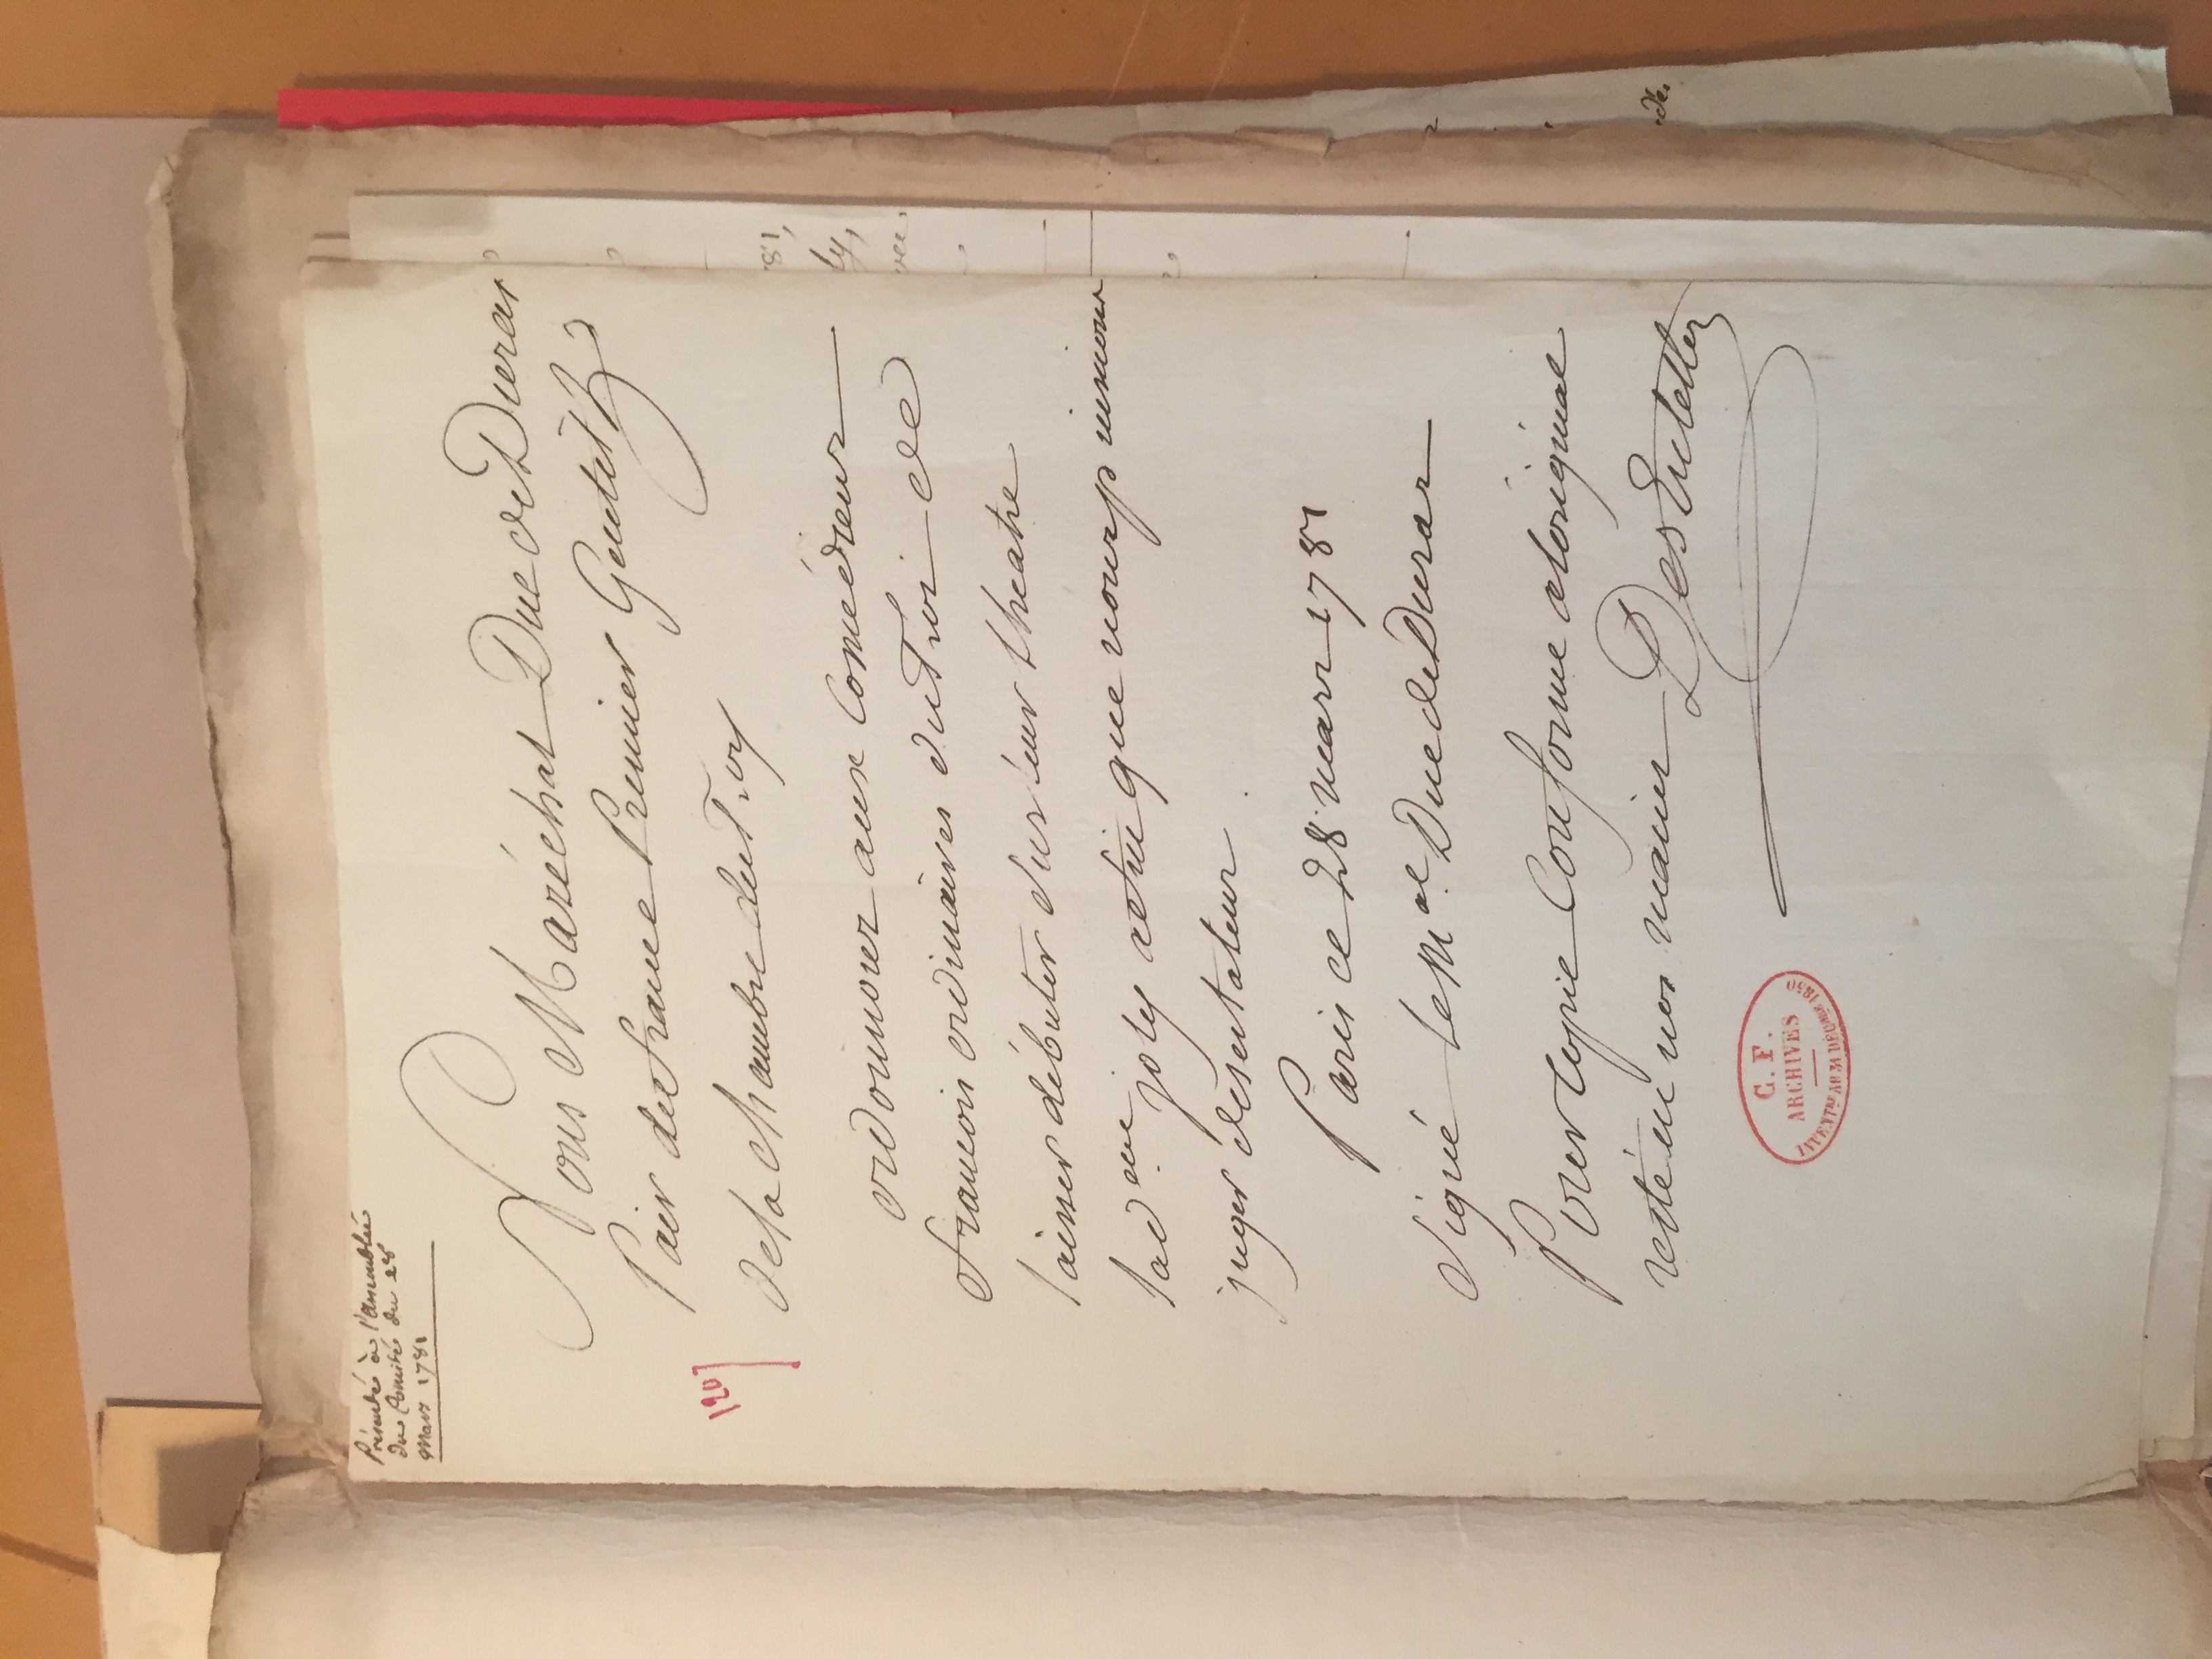 Présenté à l'Assemblée
du Comité du 28
Mars 1781
Nous Maréchal Duc de Duras
Pair de france Premier Gentilh
de la Chambre du Roy
120
ordonnons aux Comédiens
francois ordinaires du Roi de
laisser débuter sur leur theatre
la d.elle joly afin que nous puissions
juger deses talens
Paris ce 28 mars 1781
Signé le M.al Duc de Duras
Pour Copie Conforme aloriginal
resté en nos mains Des Entelles
C. F.
ARCHIVES
INVENTRE AU 31 DÉCBRE 1850
81,
ly,
vec
de